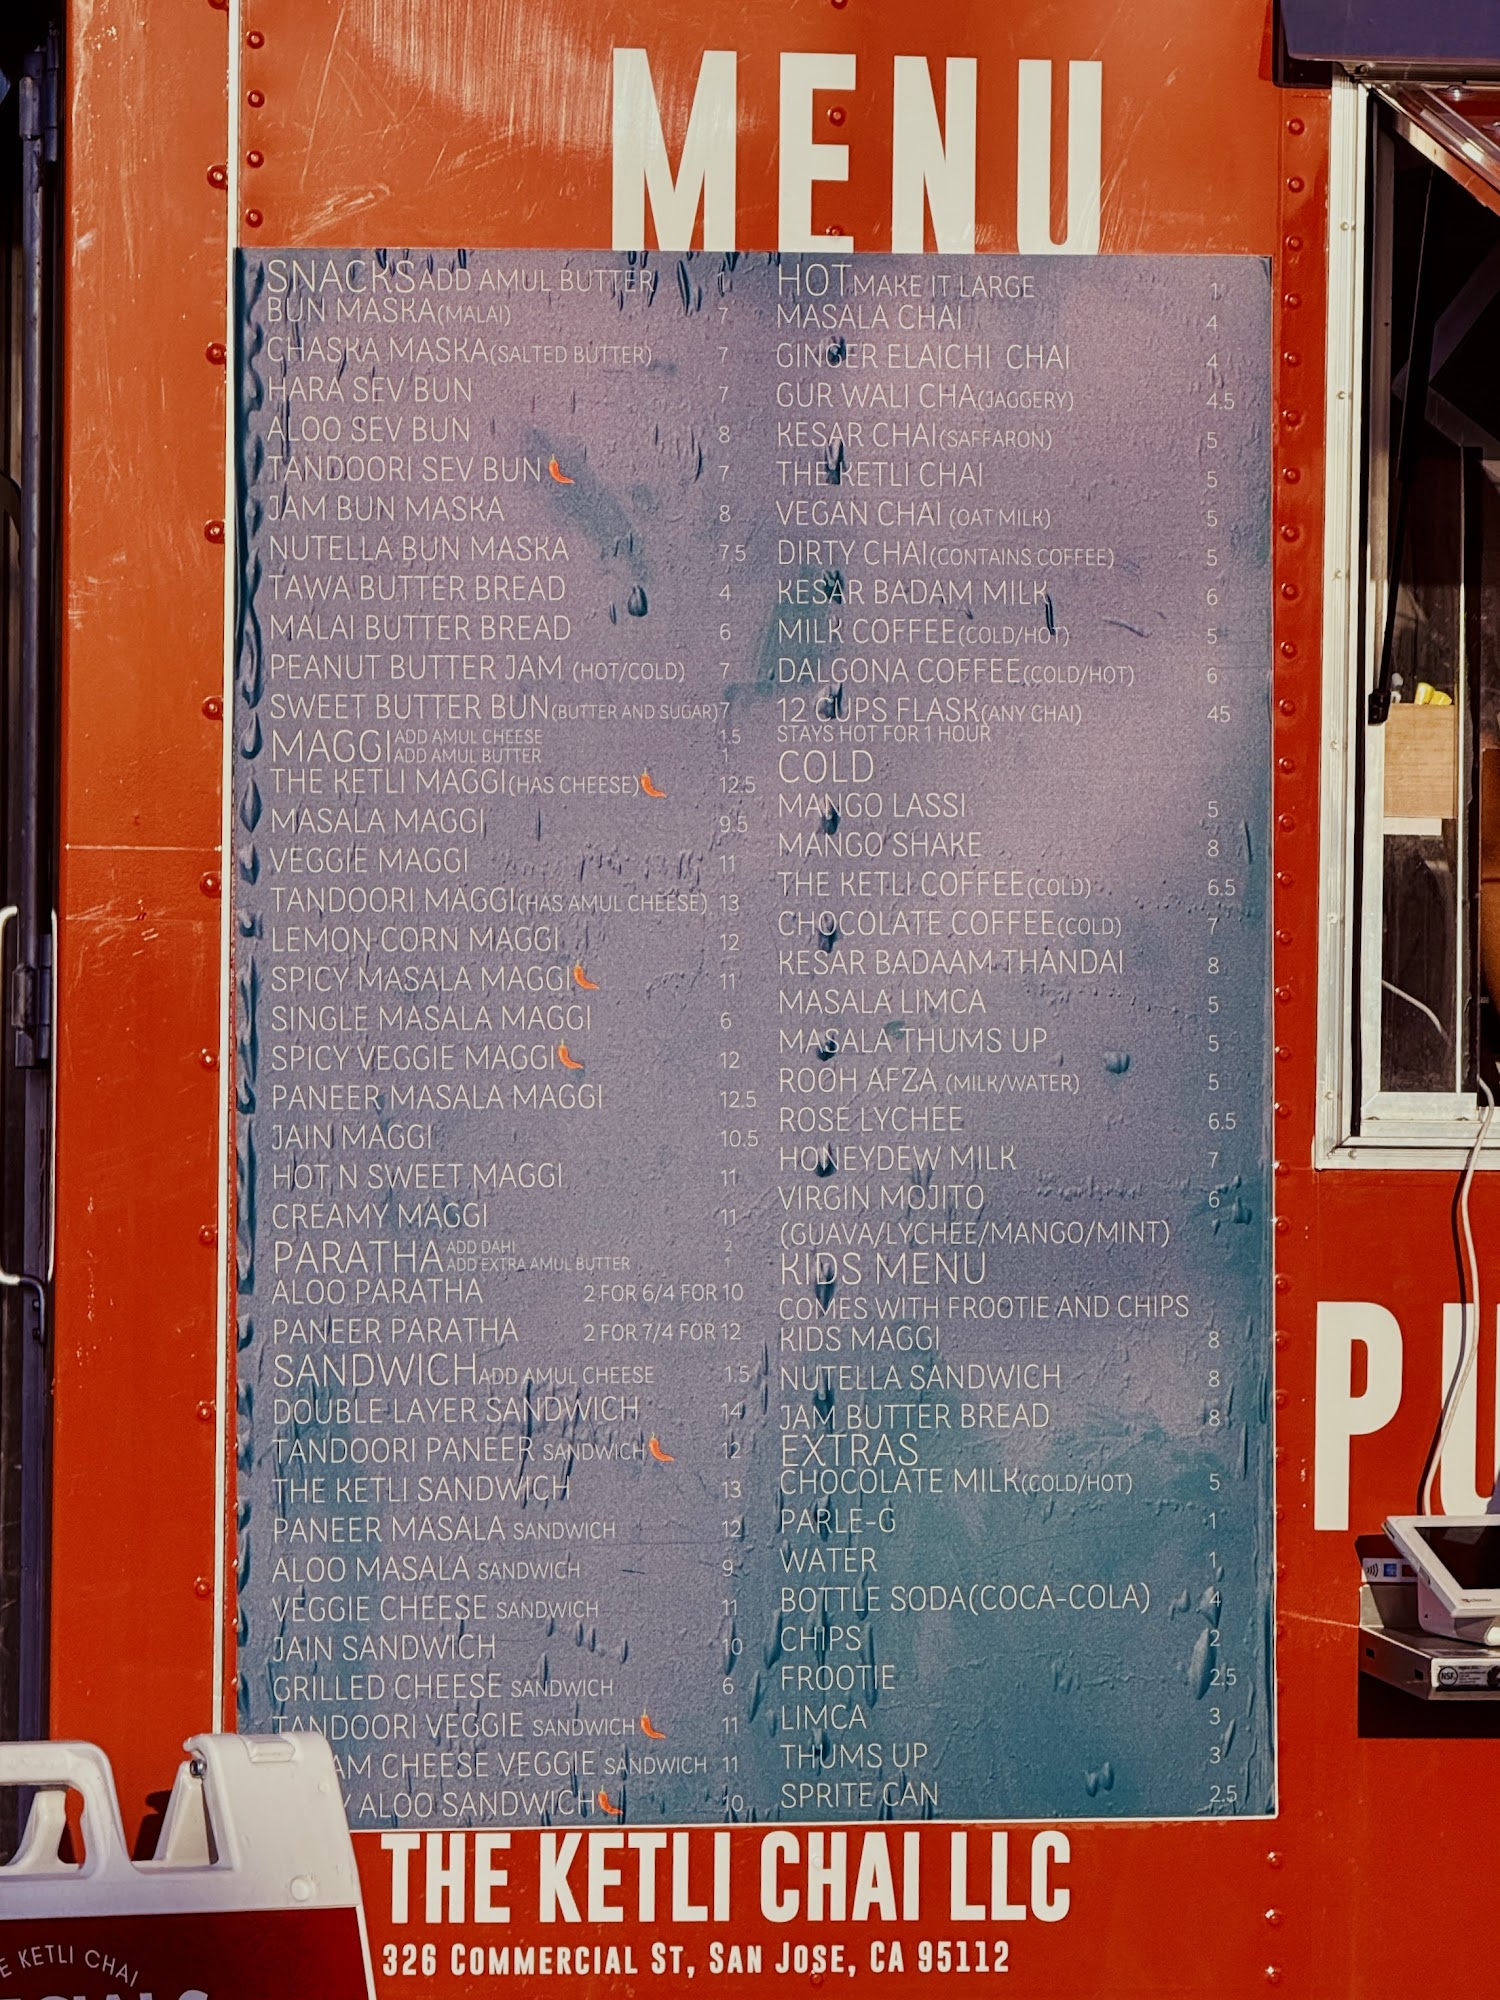 MENU
SNACKS ADD AMUL BUTTER 1
BUN MASKA(MALAI) 7
CHASKA MASKA(SALTED BUTTER) 7
HARA SEV BUN 7
ALOO SEV BUN 8
TANDOORI SEV BUN 7
JAM BUN MASKA 8
NUTELLA BUN MASKA 7.5
TAWA BUTTER BREAD 4
MALAI BUTTER BREAD 6
PEANUT BUTTER JAM (HOT/COLD) 7
SWEET BUTTER BUN(BUTTER AND SUGAR) 7
MAGGI ADD AMUL CHEESE 1.5
ADD AMUL BUTTER 1
THE KETLI MAGGI(HAS CHEESE) 12.5
MASALA MAGGI 9.5
VEGGIE MAGGI 11
TANDOORI MAGGI(HAS AMUL CHEESE) 13
LEMON CORN MAGGI 12
SPICY MASALA MAGGI 11
SINGLE MASALA MAGGI 6
SPICY VEGGIE MAGGI 12
PANEER MASALA MAGGI 12.5
JAIN MAGGI 10.5
HOT N SWEET MAGGI 11
CREAMY MAGGI 11
PARATHA ADD DAHI 2
ADD EXTRA AMUL BUTTER 1
ALOO PARATHA 2 FOR 6/4 FOR 10
PANEER PARATHA 2 FOR 7/4 FOR 12
SANDWICH ADD AMUL CHEESE 1.5
DOUBLE LAYER SANDWICH 14
TANDOORI PANEER SANDWICH 12
THE KETLI SANDWICH 13
PANEER MASALA SANDWICH 12
ALOO MASALA SANDWICH 9
VEGGIE CHEESE SANDWICH 11
JAIN SANDWICH 10
GRILLED CHEESE SANDWICH 6
TANDOORI VEGGIE SANDWICH 11
AM CHEESE VEGGIE SANDWICH 11
Y ALOO SANDWICH 10
HOT MAKE IT LARGE 1
MASALA CHAI 4
GINGER ELAICHI CHAI 4
GUR WALI CHA(JAGGERY) 4.5
KESAR CHAI(SAFFARON) 5
THE KETLI CHAI 5
VEGAN CHAI (OAT MILK) 5
DIRTY CHAI(CONTAINS COFFEE) 5
KESAR BADAM MILK 6
MILK COFFEE(COLD/HOT) 5
DALGONA COFFEE(COLD/HOT) 6
12 CUPS FLASK(ANY CHAI) 45
STAYS HOT FOR 1 HOUR
COLD
MANGO LASSI 5
MANGO SHAKE 8
THE KETLI COFFEE(COLD) 6.5
CHOCOLATE COFFEE(COLD) 7
KESAR BADAAM THANDAI 8
MASALA LIMCA 5
MASALA THUMS UP 5
ROOH AFZA (MILK/WATER) 5
ROSE LYCHEE 6.5
HONEYDEW MILK 7
VIRGIN MOJITO 6
(GUAVA/LYCHEE/MANGO/MINT)
KIDS MENU
COMES WITH FROOTIE AND CHIPS
KIDS MAGGI 8
NUTELLA SANDWICH 8
JAM BUTTER BREAD 8
EXTRAS
CHOCOLATE MILK(COLD/HOT) 5
PARLE-G 1
WATER 1
BOTTLE SODA(COCA-COLA) 4
CHIPS 2
FROOTIE 2.5
LIMCA 3
THUMS UP 3
SPRITE CAN 2.5
THE KETLI CHAI LLC
326 COMMERCIAL ST, SAN JOSE, CA 95112
PU
NSF
E KETLI CHAI